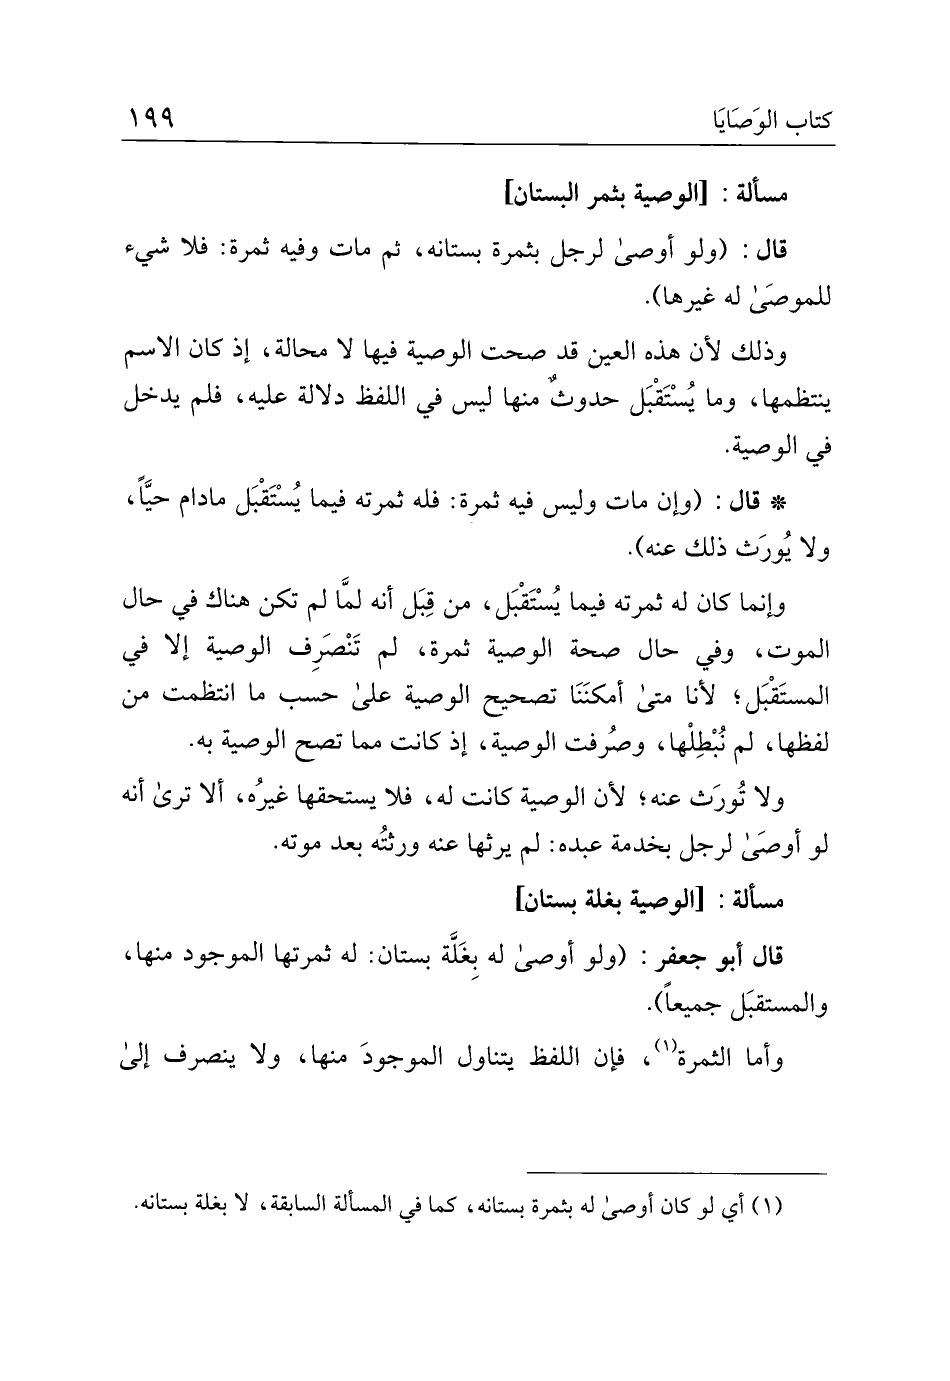 كتاب الوَصَايَا ١٩٩
مسألة : [الوصية بثمر البستان]
قال : (ولو أوصىٰ لرجل بثمرة بستانه، ثم مات وفيه ثمرة: فلا شيء
للموصَىٰ له غيرها).
وذلك لأن هذه العين قد صحت الوصية فيها لا محالة، إذ كان الاسم
ينتظمها، وما يُسْتَقْبَل حدوثٌ منها ليس في اللفظ دلالة عليه، فلم يدخل
في الوصية.
* قال : (وإن مات وليس فيه ثمرة: فله ثمرته فيما يُسْتَقْبَل مادام حيَّاً،
ولا يُورَث ذلك عنه).
وإنما كان له ثمرته فيما يُسْتَقْبَل، من قِبَل أنه لمَّا لم تكن هناك في حال
الموت، وفي حال صحة الوصية ثمرة، لم تَنْصَرِف الوصية إلا في
المستَقْبَل؛ لأنا متىٰ أمكنَنَا تصحيح الوصية علىٰ حسب ما انتظمت من
لفظها، لم نُبْطِلْها، وصُرفت الوصية، إذ كانت مما تصح الوصية به.
ولا تُورَث عنه؛ لأن الوصية كانت له، فلا يستحقها غيرُه، ألا ترىٰ أنه
لو أوصَىٰ لرجل بخدمة عبده: لم يرثها عنه ورثتُه بعد موته.
مسألة : [الوصية بغلة بستان]
قال أبو جعفر : (ولو أوصىٰ له بِغَلَّة بستان: له ثمرتها الموجود منها،
والمستقبَل جميعاً).
وأما الثمرة(١)، فإن اللفظ يتناول الموجودَ منها، ولا ينصرف إلىٰ
(١) أي لو كان أوصىٰ له بثمرة بستانه، كما في المسألة السابقة، لا بغلة بستانه.